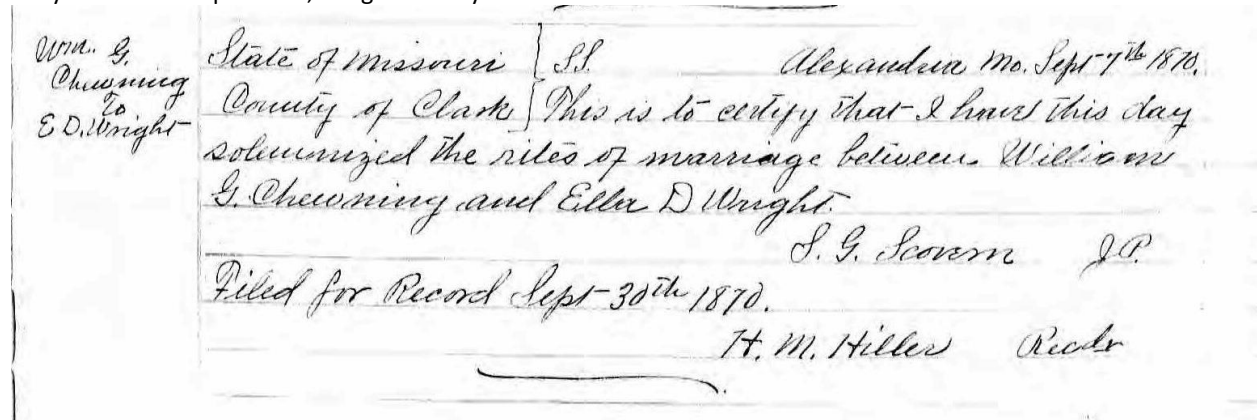 Wm. G.
Chewning
to
E D. Wright
State of Missouri } SS. Alexandria Mo. Sept 7th 1870.
County of Clark } This is to certify that I have this day
solemnized the rites of marriage between William
G. Chewning and Ella D Wright.
S. G. Scovern J.P.
Filed for Record Sept 30th 1870.
H. M. Hiller Recdr